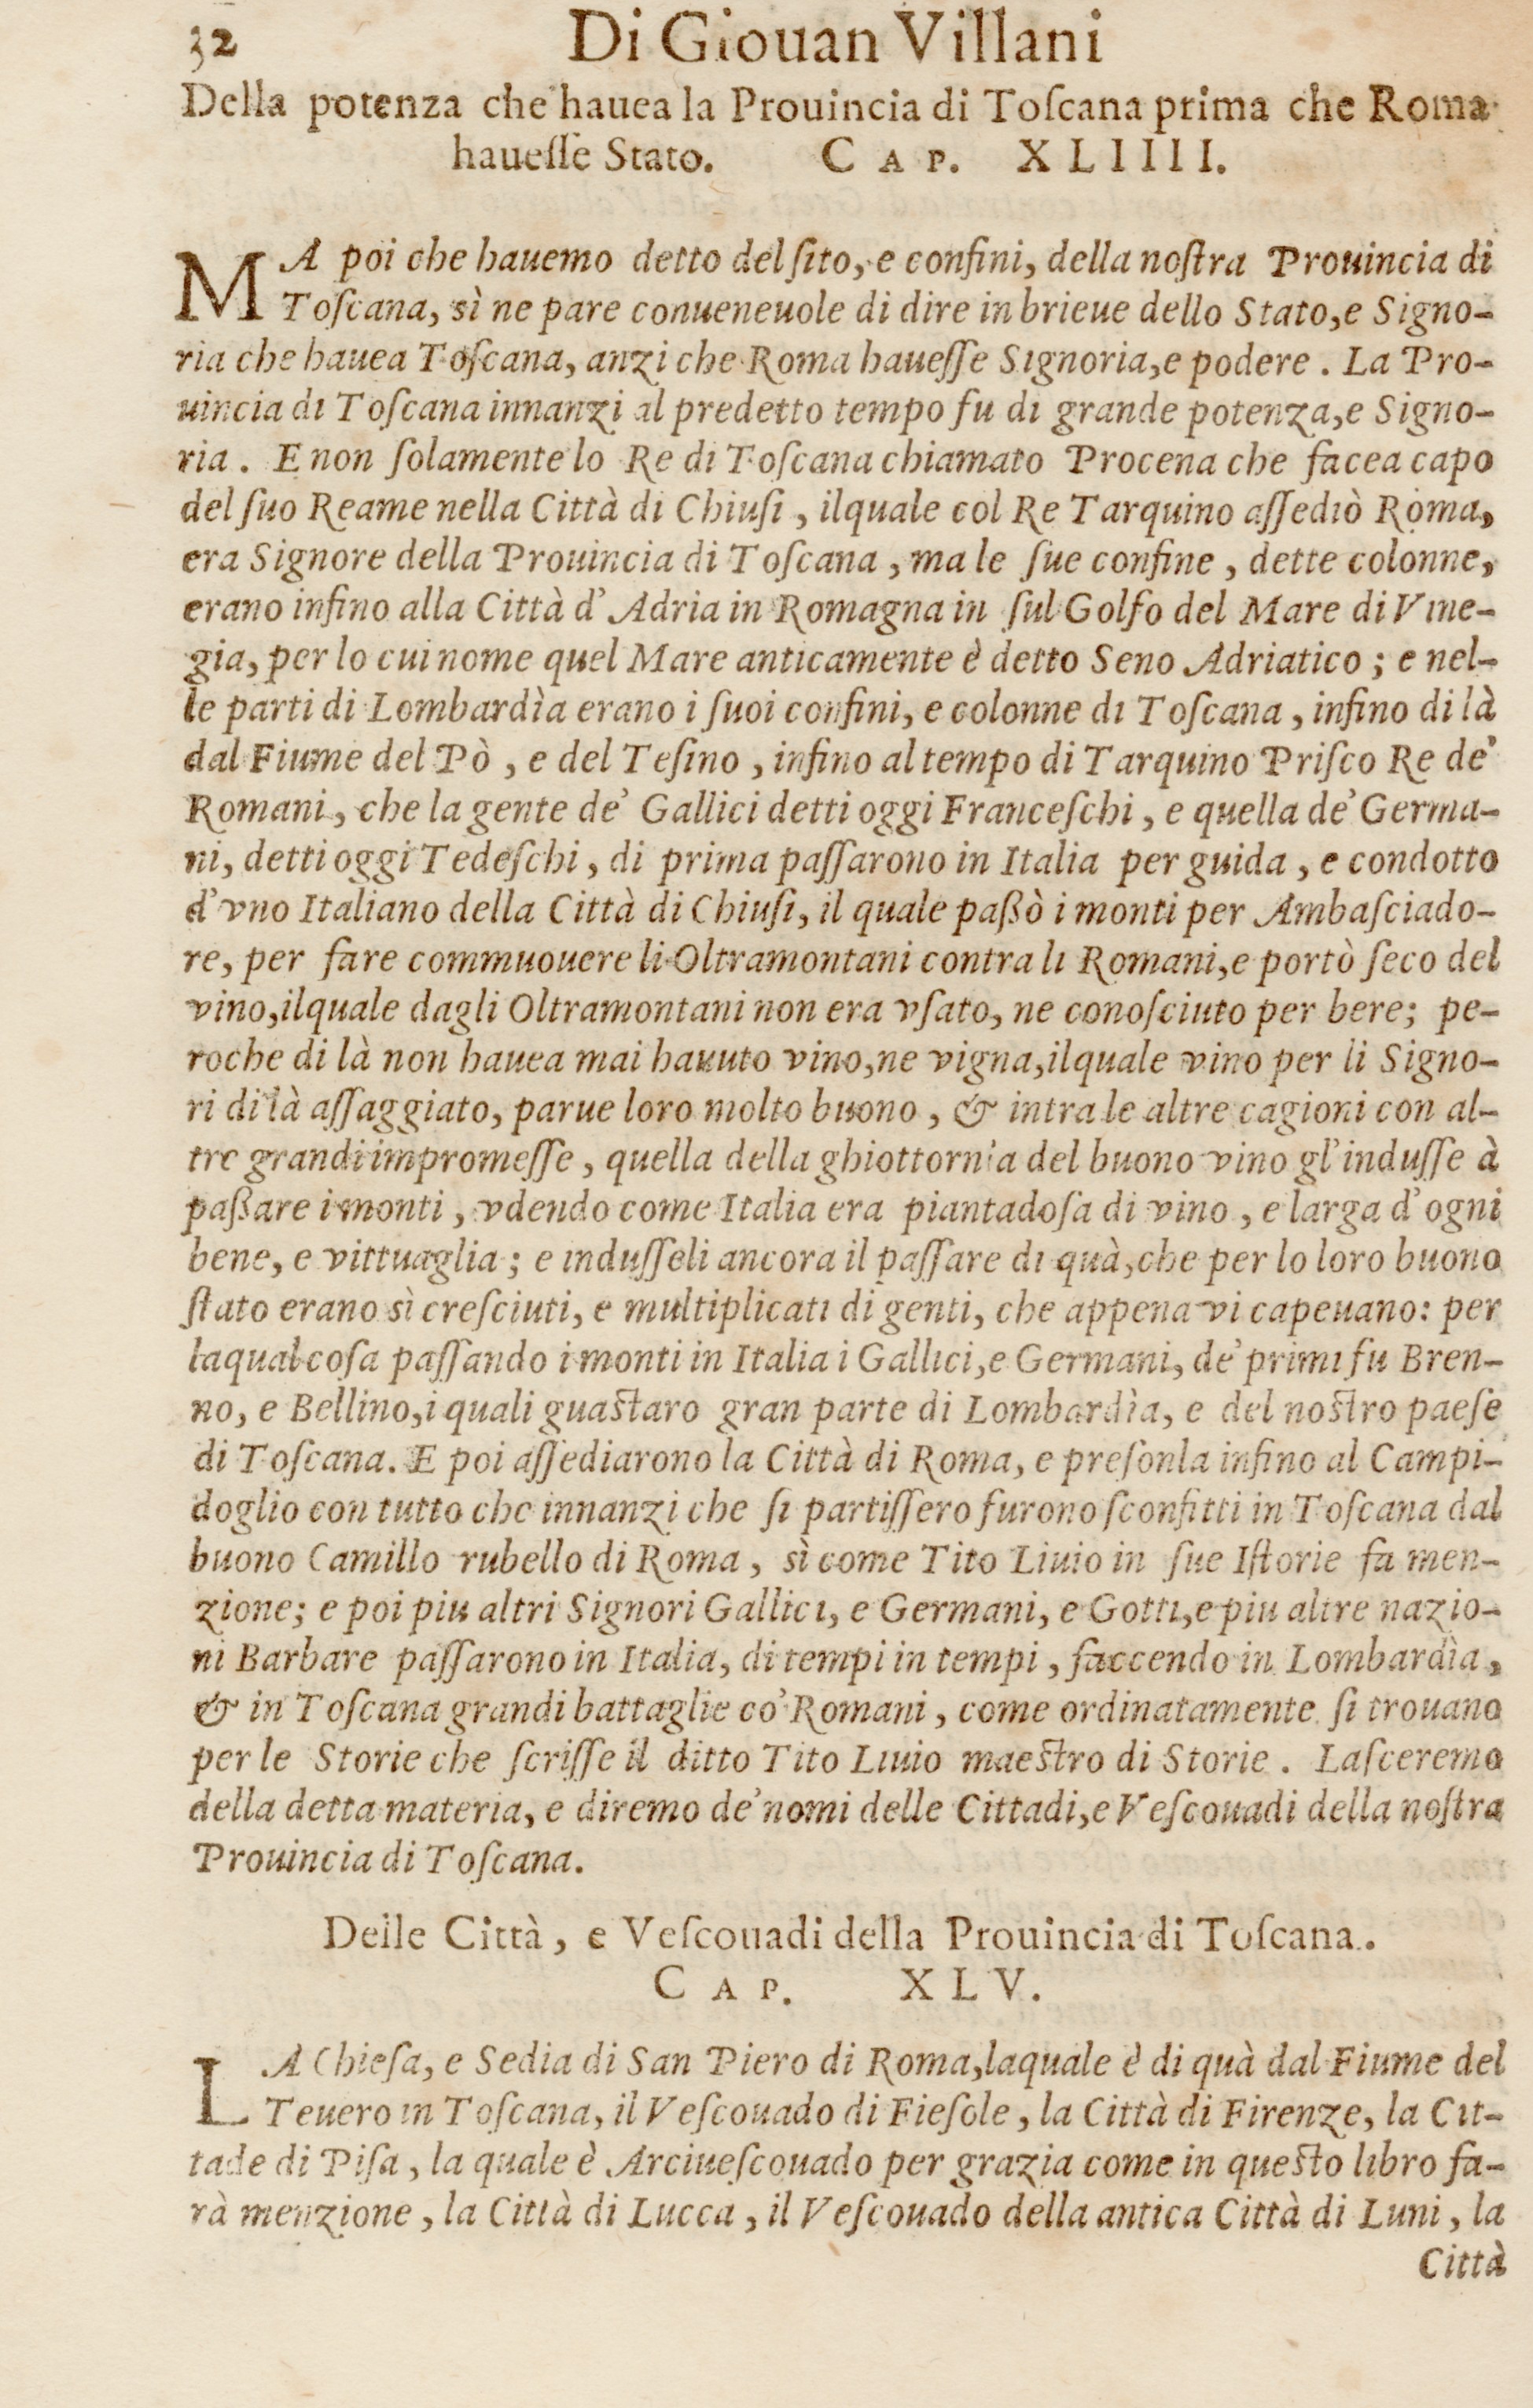 32 Di Giouan Villani
Della potenza che hauea la Prouincia di Toſcana prima che Roma
haueſſe Stato. CAP. XLIIII.
MA poi che hauemo detto del ſito, e confini, della noſtra Prouincia di
Toſcana, sì ne pare conueneuole di dire in brieue dello Stato, e Signo-
ria che hauea Toſcana, anzi che Roma haueſſe Signoria, e podere. La Pro-
uincia di Toſcana innanzi al predetto tempo fu di grande potenza, e Signo-
ria. E non ſolamente lo Re di Toſcana chiamato Procena che facea capo
del ſuo Reame nella Città di Chiuſi, ilquale col Re Tarquino aſſediò Roma,
era Signore della Prouincia di Toſcana, ma le ſue confine, dette colonne,
erano infino alla Città d' Adria in Romagna in ſul Golfo del Mare di Vine-
gia, per lo cui nome quel Mare anticamente è detto Seno Adriatico; e nel-
le parti di Lombardìa erano i ſuoi confini, e colonne di Toſcana, infino di là
dal Fiume del Pò, e del Teſino, infino al tempo di Tarquino Priſco Re de'
Romani, che la gente de' Gallici detti oggi Franceſchi, e quella de' Germa-
ni, detti oggi Tedeſchi, di prima paſſarono in Italia per guida, e condotto
d'vno Italiano della Città di Chiuſi, il quale paßò i monti per Ambaſciado-
re, per fare commuouere li Oltramontani contra li Romani, e portò ſeco del
vino, ilquale dagli Oltramontani non era vſato, ne conoſciuto per bere; pe-
roche di là non hauea mai hauuto vino, ne vigna, ilquale vino per li Signo-
ri di là aſſaggiato, parue loro molto buono, & intra le altre cagioni con al-
tre grandi impromeſſe, quella della ghiottornia del buono vino gl'induſſe à
paßare i monti, vdendo come Italia era piantadoſa di vino, e larga d'ogni
bene, e vittuaglia; e induſſeli ancora il paſſare di quà, che per lo loro buono
ſtato erano sì creſciuti, e multiplicati di genti, che appena vi capeuano: per
laqual coſa paſſando i monti in Italia i Gallici, e Germani, de' primi fu Bren-
no, e Bellino, i quali guaſtaro gran parte di Lombardìa, e del noſtro paeſe
di Toſcana. E poi aſſediarono la Città di Roma, e preſonla infino al Campi-
doglio con tutto che innanzi che ſi partiſſero furono ſconfitti in Toſcana dal
buono Camillo rubello di Roma, sì come Tito Liuio in ſue Iſtorie fa men-
zione; e poi piu altri Signori Gallici, e Germani, e Gotti, e piu altre nazio-
ni Barbare paſſarono in Italia, di tempi in tempi, faccendo in Lombardìa,
& in Toſcana grandi battaglie co' Romani, come ordinatamente ſi trouano
per le Storie che ſcriſſe il ditto Tito Liuio maeſtro di Storie. Laſceremo
della detta materia, e diremo de' nomi delle Cittadi, e Veſcouadi della noſtra
Prouincia di Toſcana.
Delle Città, e Veſcouadi della Prouincia di Toſcana.
CAP. XLV.
LA Chieſa, e Sedia di San Piero di Roma, laquale è di quà dal Fiume del
Teuero in Toſcana, il Veſcouado di Fieſole, la Città di Firenze, la Cit-
tade di Piſa, la quale è Arciueſcouado per grazia come in queſto libro fa-
rà menzione, la Città di Lucca, il Veſcouado della antica Città di Luni, la
Città